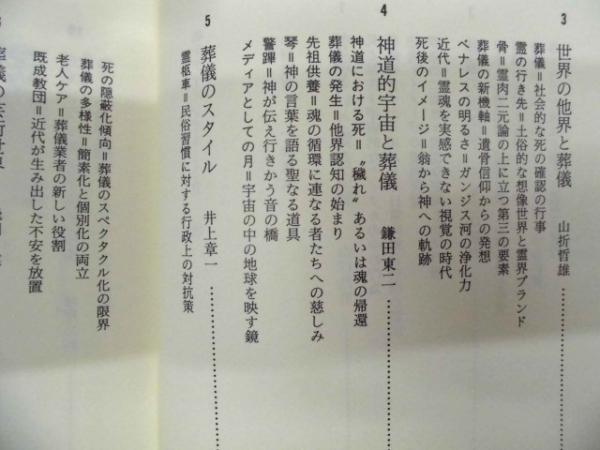 3 世界の他界と葬儀 山折哲雄
葬儀＝社会的な死の確認の行事
霊の行き先＝土俗的な想像世界と霊界ブランド
骨＝霊肉二元論の上に立つ第三の要素
葬儀の新機軸＝遺骨信仰からの発想
ベナレスの明るさ＝ガンジス河の浄化力
近代＝霊魂を実感できない視覚の時代
死後のイメージ＝翁から神への軌跡
4 神道的宇宙と葬儀 鎌田東二
神道における死＝〝穢れ〟あるいは魂の帰還
葬儀の発生＝他界認知の始まり
先祖供養＝魂の循環に連なる者たちへの慈しみ
琴＝神の言葉を語る聖なる道具
警蹕＝神が伝え行きかう音の橋
メディアとしての月＝宇宙の中の地球を映す鏡
5 葬儀のスタイル 井上章一
霊柩車＝民俗習慣に対する行政上の対抗策
死の隠蔽化傾向＝葬儀のスペクタクル化の限界
葬儀の多様性＝簡素化と個別化の両立
老人ケア＝葬儀業者の新しい役割
既成教団＝近代が生み出した不安を放置